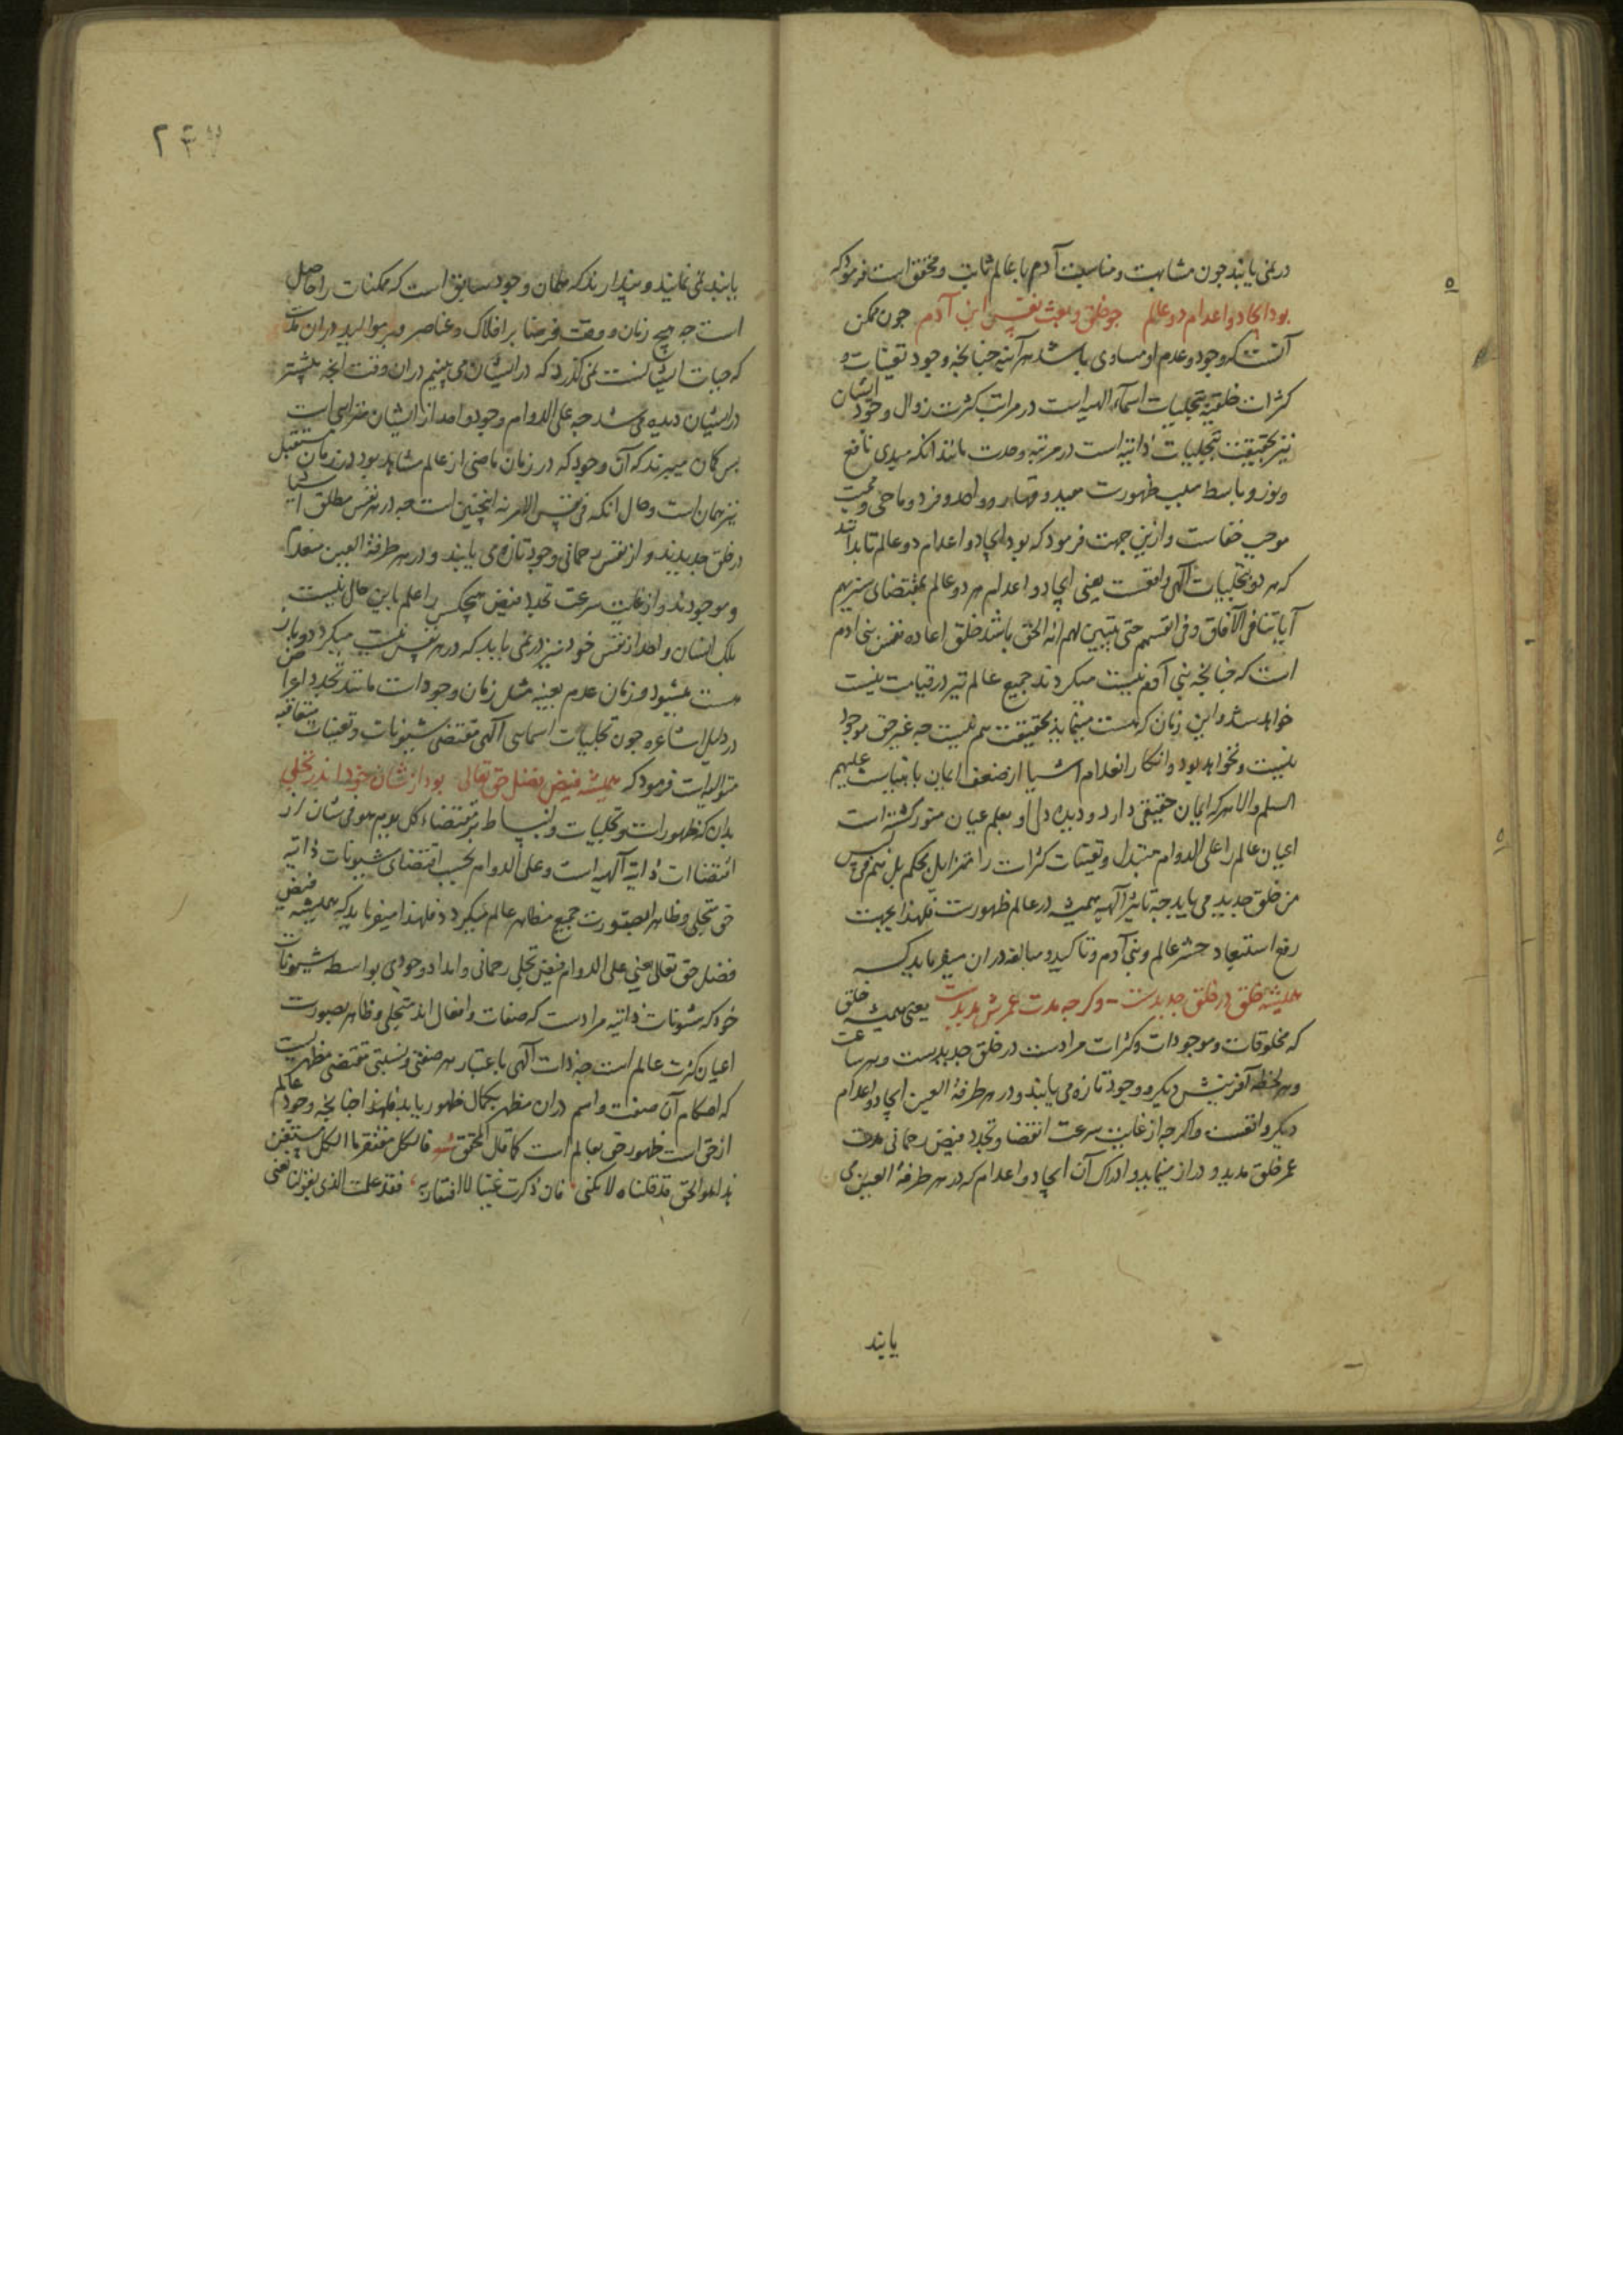 در نمی یابند چون مشابهت و مناسبت آدم با عالم ثابت و محقق است فرمود که
بود ایجاد و اعدام دو عالم چو خلق و بعث نفس ابن آدم چون ممکن
آنست که وجود و عدم او مساوی باشد هر آینه چنانچه وجود تعینات و
کثرات خلقیه بتجلیات اسماء الهیه است در مراتب کثرت زوال وجود ایشان
نیز بحقیقت بتجلیات ذاتیه است در مرتبه وحدت مانند انکه مبدی نافع
و نور و باسط سبب ظهورست معید و قهار و واحد و فرد و ماحی و ممیت
موجب خفاست و ازین جهت فرمود که بود ایجاد و اعدام دو عالم تا بدانند
که هر دو بتجلیات الهی واقعست یعنی ایجاد و اعدام هر دو عالم بمقتضای سنریهم
آیاتنا فی الآفاق و فی انفسهم حتی یتبین لهم انه الحق باشد خلق و اعاده نفس بنی ادم
است که چنانچه بنی آدم نیست میکردند جمیع عالم نیز در قیامت نیست
خواهد شد و این زمان که هست مینماید بحقیقت هم نیست چه غیر حق موجود
نیست و نخواهد بود و انکار انعدام اشیا از ضعف ایمان بانبیاست علیهم
السلم و الا هر که ایمان حقیقی دارد و دیده دل او بعلم عیان منور کشته است
اعیان عالم را علی الدوام متبدل و تعینات کثرات را متزایل بحکم بل هم فی لبس
من خلق جدید می یابد چه تاثیر الهیه همیشه در عالم ظهورست فلهذا بجهت
رفع استبعاد حشر عالم و بنی آدم و تاکید و مبالغه در ان میفرماید که
همیشه خلق در خلق جدیدست وکرچه مدت عمرش مدیدست یعنی همیشه خلق
که مخلوقات و موجودات و کثرات مرادست در خلق جدیدست و هر ساعت
و هر لحظه آفرینش دیکر و وجود تازه می یابند و در هر طرفة العین ایجاد و اعدام
دیکر واقعست و اکرچه از غایت سرعت انقضا و تجدد فیض رحمانی مدت
عمر خلق مدید و دراز مینماید و ادراک آن ایجاد و اعدام که در هر طرفة العین می
یابند
۲۴۷
یابند نمی نمایند و پندارند که همان وجود سابق است که ممکنات را حاصل
است چه هیچ زمان و وقت فرضا بر افلاک و عناصر و بر موالید در ان مدت
که حیات ایشانست نمی کذرد که در ایشان می بینیم در ان وقت انچه پیشتر
در ایشان دیده می شد چه علی الدوام وجود و امداد ایشان متوالی است
پس کمان میبرند که آن وجود که در زمان ماضی از عالم مشاهد بود در زمان مستقبل
نیز همان است و حال انکه فی نفس الامر نه اینچنین است چه در هر نفس مطلق اشیا
در خلق جدیدند و از نفس رحمانی وجود تازه می یابند و در هر طرفة العین معدوم
و موجودند و از غایت سرعت تجدد فیض هیچکس را علم باین حال نیست
بلک انسان واحد از نفس خود نیز در نمی یابد که در هر نفس نیست میکردد و باز
هست میشود و زمان عدم بعینه مثل زمان وجود است مانند تجدد اعراض
در دلیل اشاعره چون تجلیات اسمایی الهی مقتضی شیونات و تعینات متعاقبه
متوالیه است فرمود که همیشه فیض فضل حق تعالی بود از شان خود اندر تجلی
بدان که ظهورات و تجلیات و انبساط بر مقتضاء کل یوم هو فی شان از
اقتضاات ذاتیه الهیه است و علی الدوام بحسب اقتضای شیونات ذاتیه
حق متجلی و ظاهر بصورت جمیع مظاهر عالم میکردد فلهذا میفرماید که همیشه فیض
فضل حق تعالی یعنی علی الدوام فیض تجلی رحمانی و امداد وجودی بواسطه شیونات
خود که شئونات ذاتیه مرادست که صفات و افعال اند متجلی و ظاهر بصورت
اعیان کثرت عالم است چه ذات الهی باعتبار هر صفتی و نسبتی مقتضی مظهریست
که احکام آن صفت و اسم در ان مظهر بکمال ظهور یابد فلهذا چنانچه وجود عالم
از حق است ظهور حق بعالم است کما قال المحقق فالکل مفتقر ما الکل مستغن
هذا هو الحق قد قلناه لا نکنی فان ذکرت غنیا لا افتقار به فقد علمت الذی بقولنا نعنی